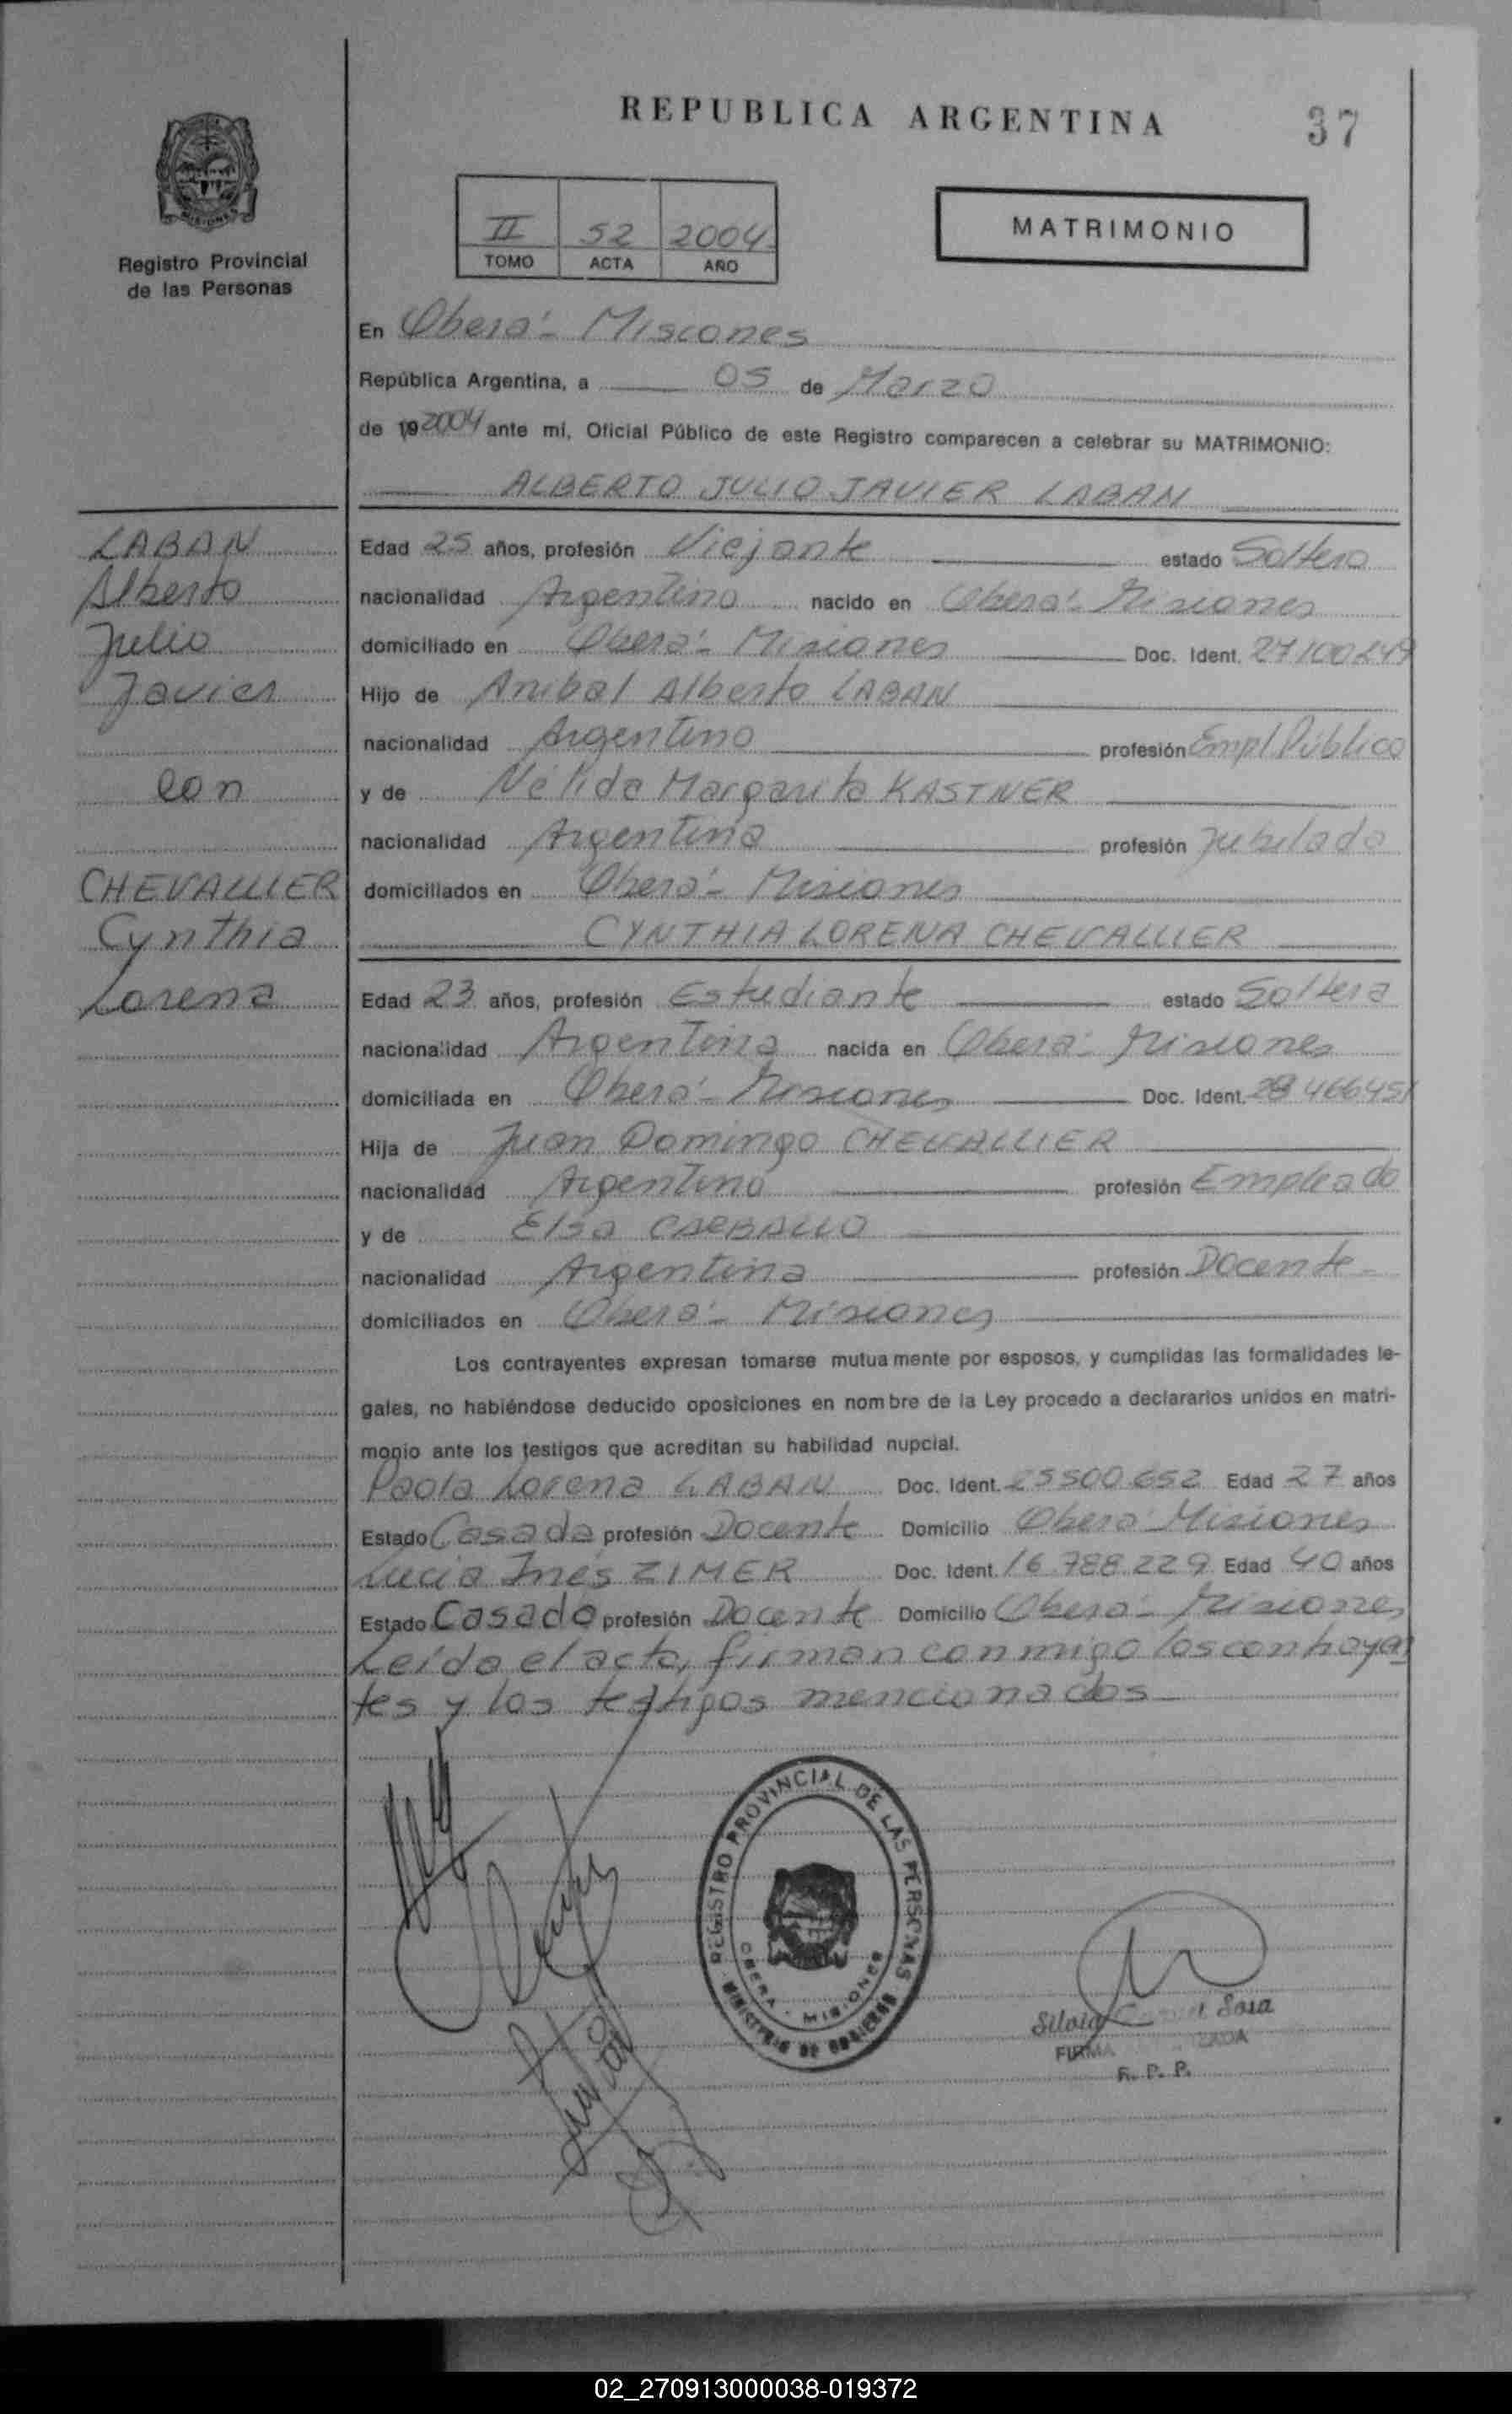 REPUBLICA ARGENTINA
37
Registro Provincial
de las Personas
II 52 2004
TOMO ACTA AÑO
MATRIMONIO
En Oberá - Misiones
República Argentina, a 05 de Marzo
de 192004 ante mí, Oficial Público de este Registro comparecen a celebrar su MATRIMONIO:
ALBERTO JULIO JAVIER LABAN
LABAN
Alberto
Julio
Javier
con
CHEVALLIER
Cynthia
Lorena
Edad 25 años, profesión Viajante estado Soltero
nacionalidad Argentino nacido en Oberá - Misiones
domiciliado en Oberá - Misiones Doc. Ident.
Hijo de Anibal Alberto LABAN
nacionalidad Argentino profesión Empl Público
y de Nélida Margarita KASTNER
nacionalidad Argentina profesión Jubilada
domiciliados en Oberá - Misiones
CYNTHIA LORENA CHEVALLIER
Edad 23 años, profesión Estudiante estado Soltera
nacionalidad Argentina nacida en Oberá - Misiones
domiciliada en Oberá - Misiones Doc. Ident.
Hija de Juan Domingo CHEVALLIER
nacionalidad Argentino profesión Empleado
y de Elsa CARBALLO
nacionalidad Argentina profesión Docente
domiciliados en Oberá - Misiones
Los contrayentes expresan tomarse mutuamente por esposos, y cumplidas las formalidades le-
gales, no habiéndose deducido oposiciones en nombre de la Ley procedo a declararlos unidos en matri-
monio ante los testigos que acreditan su habilidad nupcial.
Paola Lorena LABAN Doc. Ident. 25500.652 Edad 27 años
Estado Casada profesión Docente Domicilio Oberá Misiones
Lucia Inés ZIMER Doc. Ident. 16.788.229 Edad 40 años
Estado Casada profesión Docente Domicilio Oberá - Misiones
Leída el acta, firman conmigo los contrayen
tes y los testigos mencionados
REGISTRO PROVINCIAL DE LAS PERSONAS
MINISTERIO DE GOBIERNO
OBERA - MISIONES
Silvia Sosa
FIRMA
R. P. P.
02_270913000038-019372